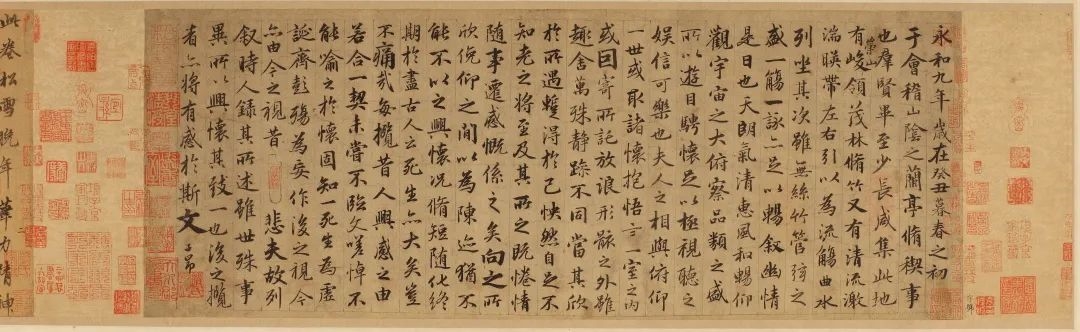 永和九年歲在癸丑暮春之初
于會稽山陰之蘭亭脩稧事
也羣賢畢至少長咸集此地
有崇山峻領茂林脩竹又有清流激
湍暎帶左右引以為流觴曲水
列坐其次雖無絲竹管弦之
盛一觴一詠亦足以暢叙幽情
是日也天朗氣清惠風和暢仰
觀宇宙之大俯察品類之盛
所以遊目騁懷足以極視聽之
娛信可樂也夫人之相與俯仰
一世或取諸懷抱悟言一室之內
或因寄所託放浪形骸之外雖
趣舍萬殊静躁不同當其欣
於所遇蹔得於己怏然自足不
知老之將至及其所之既惓情
隨事遷感慨係之矣向之所
欣俛仰之間以為陳迹猶不
能不以之興懷況脩短隨化終
期於盡古人云死生亦大矣豈
不痛哉每攬昔人興感之由
若合一契未嘗不臨文嗟悼不
能喻之於懷固知一死生為虛
誕齊彭殤為妄作後之視今
亦由今之視昔悲夫故列
叙時人錄其所述雖世殊事
異所以興懷其致一也後之攬
者亦將有感於斯文子昂
此卷松雪晚年筆力精神